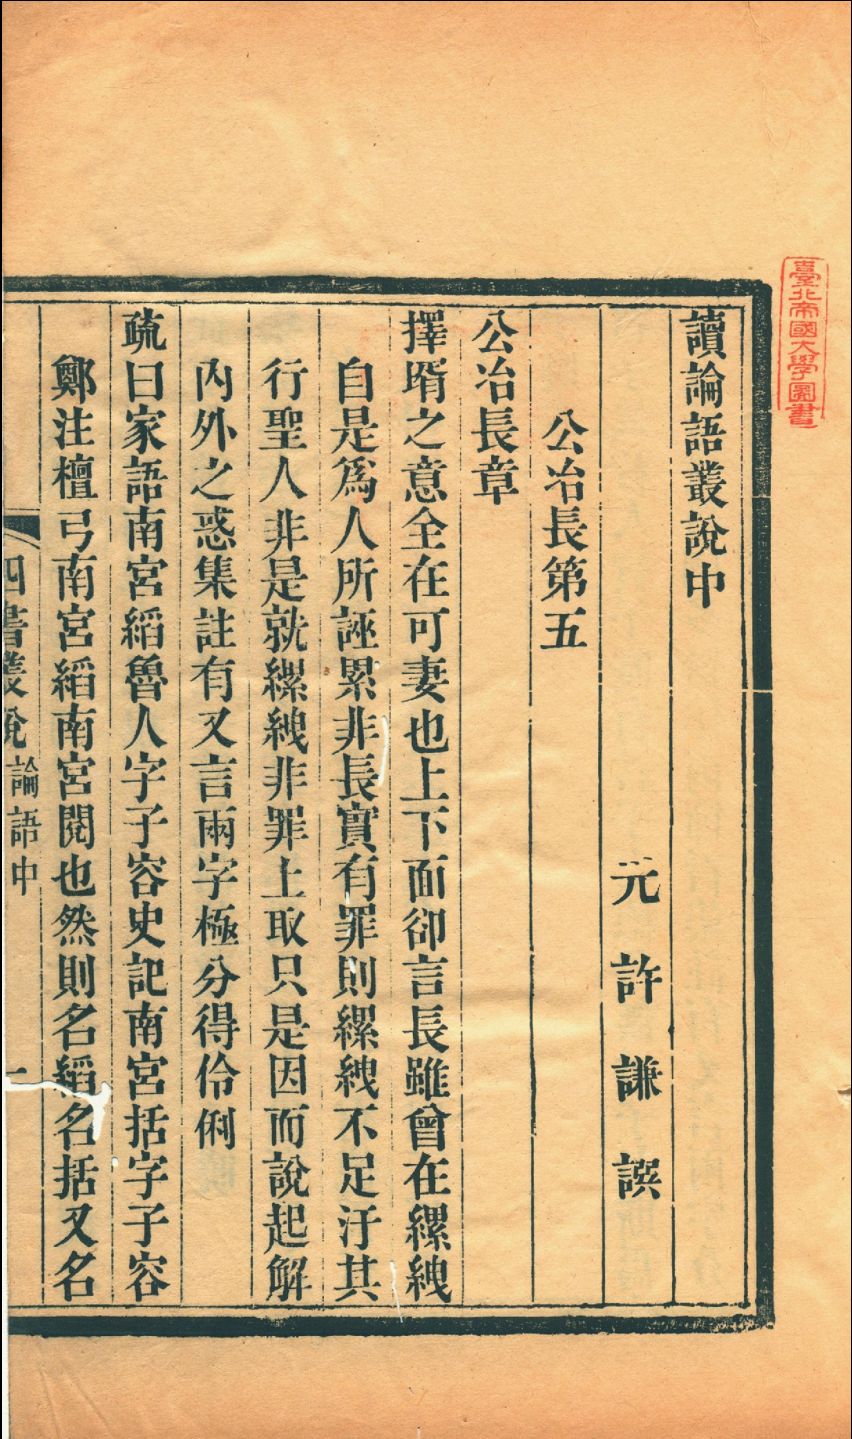 臺北帝國大學圖書
讀論語叢說中
元許謙譔
公冶長第五
公冶長章
擇壻之意全在可妻也上下面卻言長雖曾在縲絏
自是爲人所誣累非長實有罪則縲絏不足汙其
行聖人非是就縲絏非罪上取只是因而說起解
內外之惑集註有又言兩字極分得伶俐
疏曰家語南宮縚魯人字子容史記南宮括字子容
鄭注檀弓南宮縚南宮閱也然則名縚名括又名
四書叢說 論語中 一